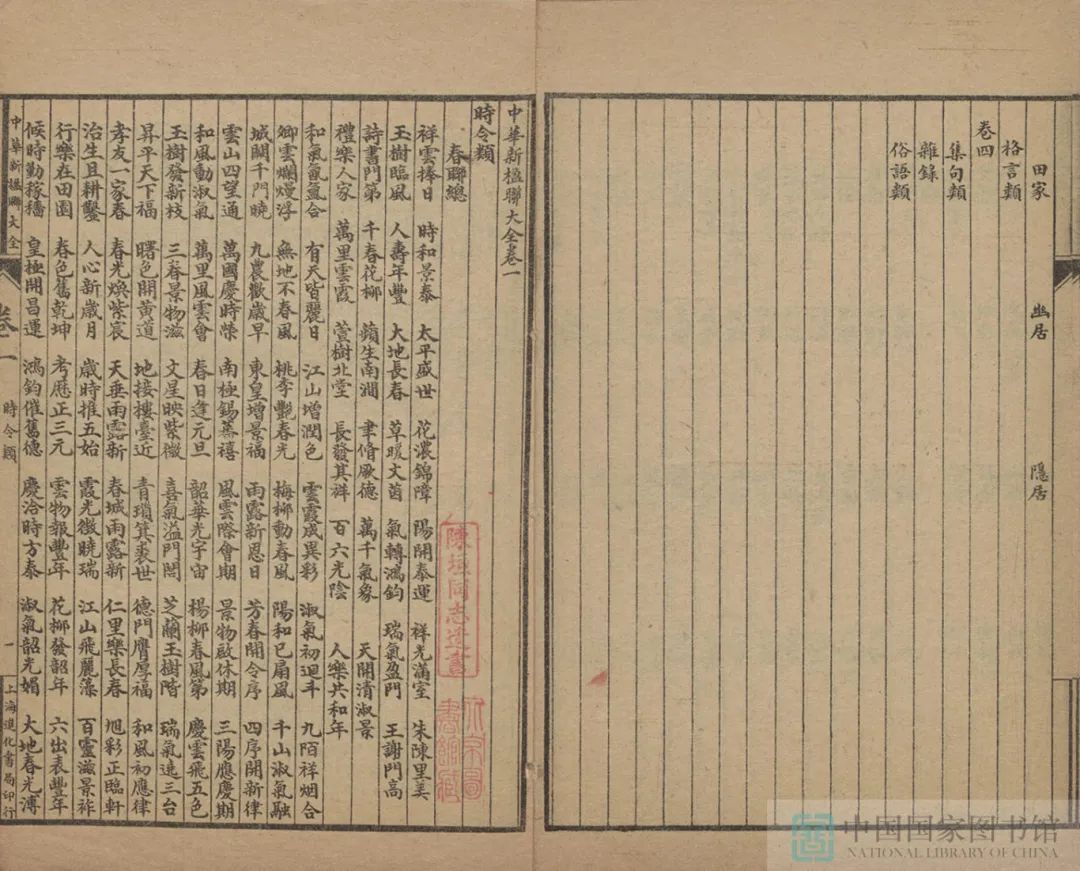 田家 幽居 隱居
格言類
卷四
集句類
雜錄
俗語類
中華新楹聯大全卷一
時令類
春聯總
祥雲捧日 時和景泰 太平盛世 花濃錦障 陽開泰運 祥光滿室 朱陳里美
玉樹臨風 人壽年豐 大地長春 草暖文茵 氣轉鴻鈞 瑞氣盈門 王謝門高
詩書門第 千春花柳 蘋生南澗 聿脩厥德 萬千氣象 天開清淑景
禮樂人家 萬里雲霞 萱樹北堂 長發其祥 百六光陰 人樂共和年
和氣氤氳合 有天皆麗日 江山增潤色 雲霞成異彩 淑氣初迴斗 九陌祥烟合
卿雲爛熳浮 無地不春風 桃李艷春光 梅柳動春風 陽和已扇風 千山淑氣融
城闕千門曉 九農歡歲早 東皇增景福 雨露新恩日 芳春開令序 四序開新律
雲山四望通 萬國慶時榮 南極錫蕃禧 風雲際會期 景物啟休期 三陽應慶期
和風動淑氣 萬里風雲會 春日逢元旦 韶華光宇宙 楊柳春風第 慶雲飛五色
玉樹發新枝 三春景物滋 文星映紫微 喜氣溢門閭 芝蘭玉樹階 瑞氣遶三台
昇平天下福 曙色開黃道 地接樓臺近 青瑣箕裘世 德門膺厚福 和風初應律
孝友一家春 春光煥紫宸 天垂雨露新 春城雨露新 仁里樂長春 旭彩正臨軒
治生且耕鑿 人心新歲月 歲時推五始 霞光徵曉瑞 江山飛麗藻 百靈滋景祚
行樂在田園 春色舊乾坤 考歷正三元 雲物報豐年 花柳發韶年 六出表豐年
候時勤稼穡 皇極開昌運 鴻鈞催舊德 慶洽時方泰 淑氣韶光媚 大地春光溥
中華新楹聯大全 卷一 時令類 一 上海進化書局印行
陳垣同志遺書
中国国家图书馆
NATIONAL LIBRARY OF CHINA